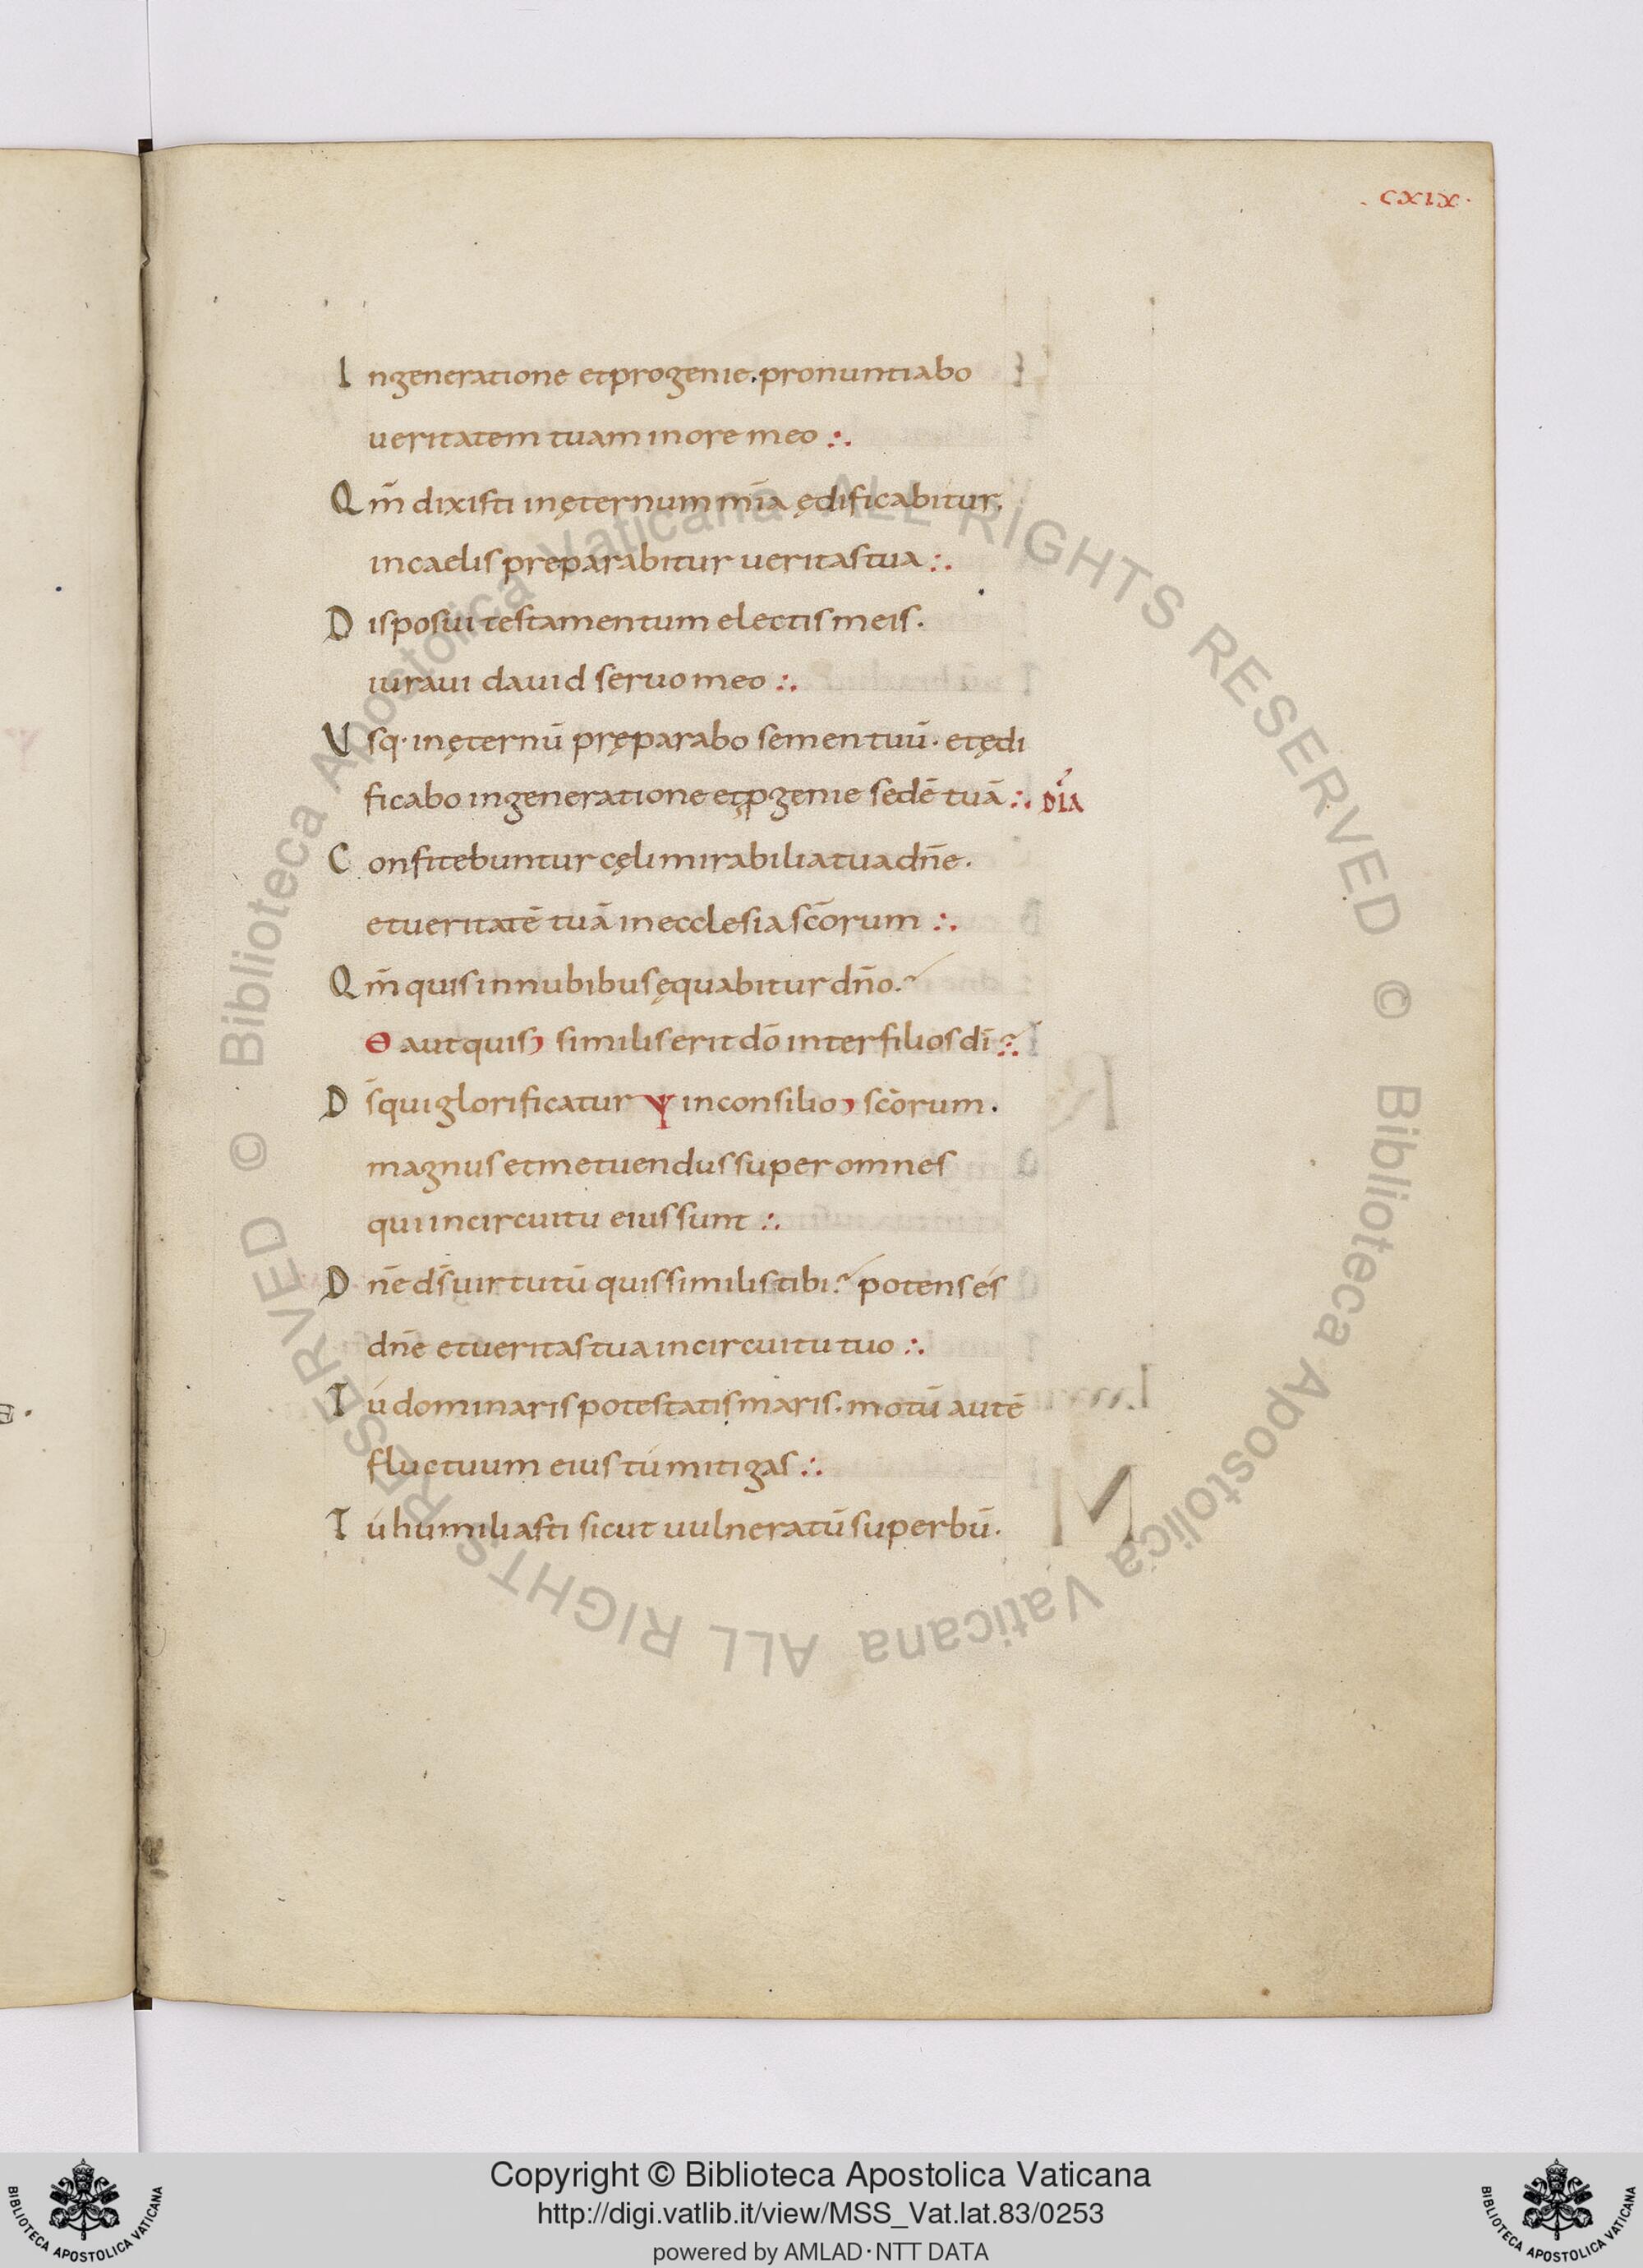 . cxix.
In generatione et progenie. pronuntiabo
ueritatem tuam in ore meo ∴
Qm̄ dixisti in ęternum mīa ędificabitur.
in caelis preparabitur ueritas tua ∴
Disposui testamentum electis meis.
iuraui dauid seruo meo ∴
Usq· in ęternū pręparabo semen tuū· et ędi
ficabo in generatione et ꝓgenie sedē tuā ∴ DIA
Confitebuntur cęli mirabilia tua dn̄e.
et ueritatē tuā in ecclesia sc̄orum ∴
Qm̄ quis in nubibus ęquabitur dn̄o?
Ɵ aut quis similis erit dō inter filios dī?
Ds̄ qui glorificatur Ψ in consilio sc̄orum.
magnus et metuendus super omnes
qui in circuitu eius sunt ∴
Dn̄e ds̄ uirtutū quis similis tibi? potens és
dn̄e et ueritas tua in circuitu tuo ∴
Tú dominaris potestatis maris. motū autē
fluctuum eius tú mitigas ∴
Tú humiliasti sicut uulneratū superbū.
© Biblioteca Apostolica Vaticana ALL RIGHTS RESERVED © Biblioteca Apostolica Vaticana ALL RIGHTS RESERVED
Copyright © Biblioteca Apostolica Vaticana
http://digi.vatlib.it/view/MSS_Vat.lat.83/0253
powered by AMLAD·NTT DATA
BIBLIOTECA APOSTOLICA VATICANA
BIBLIOTECA APOSTOLICA VATICANA